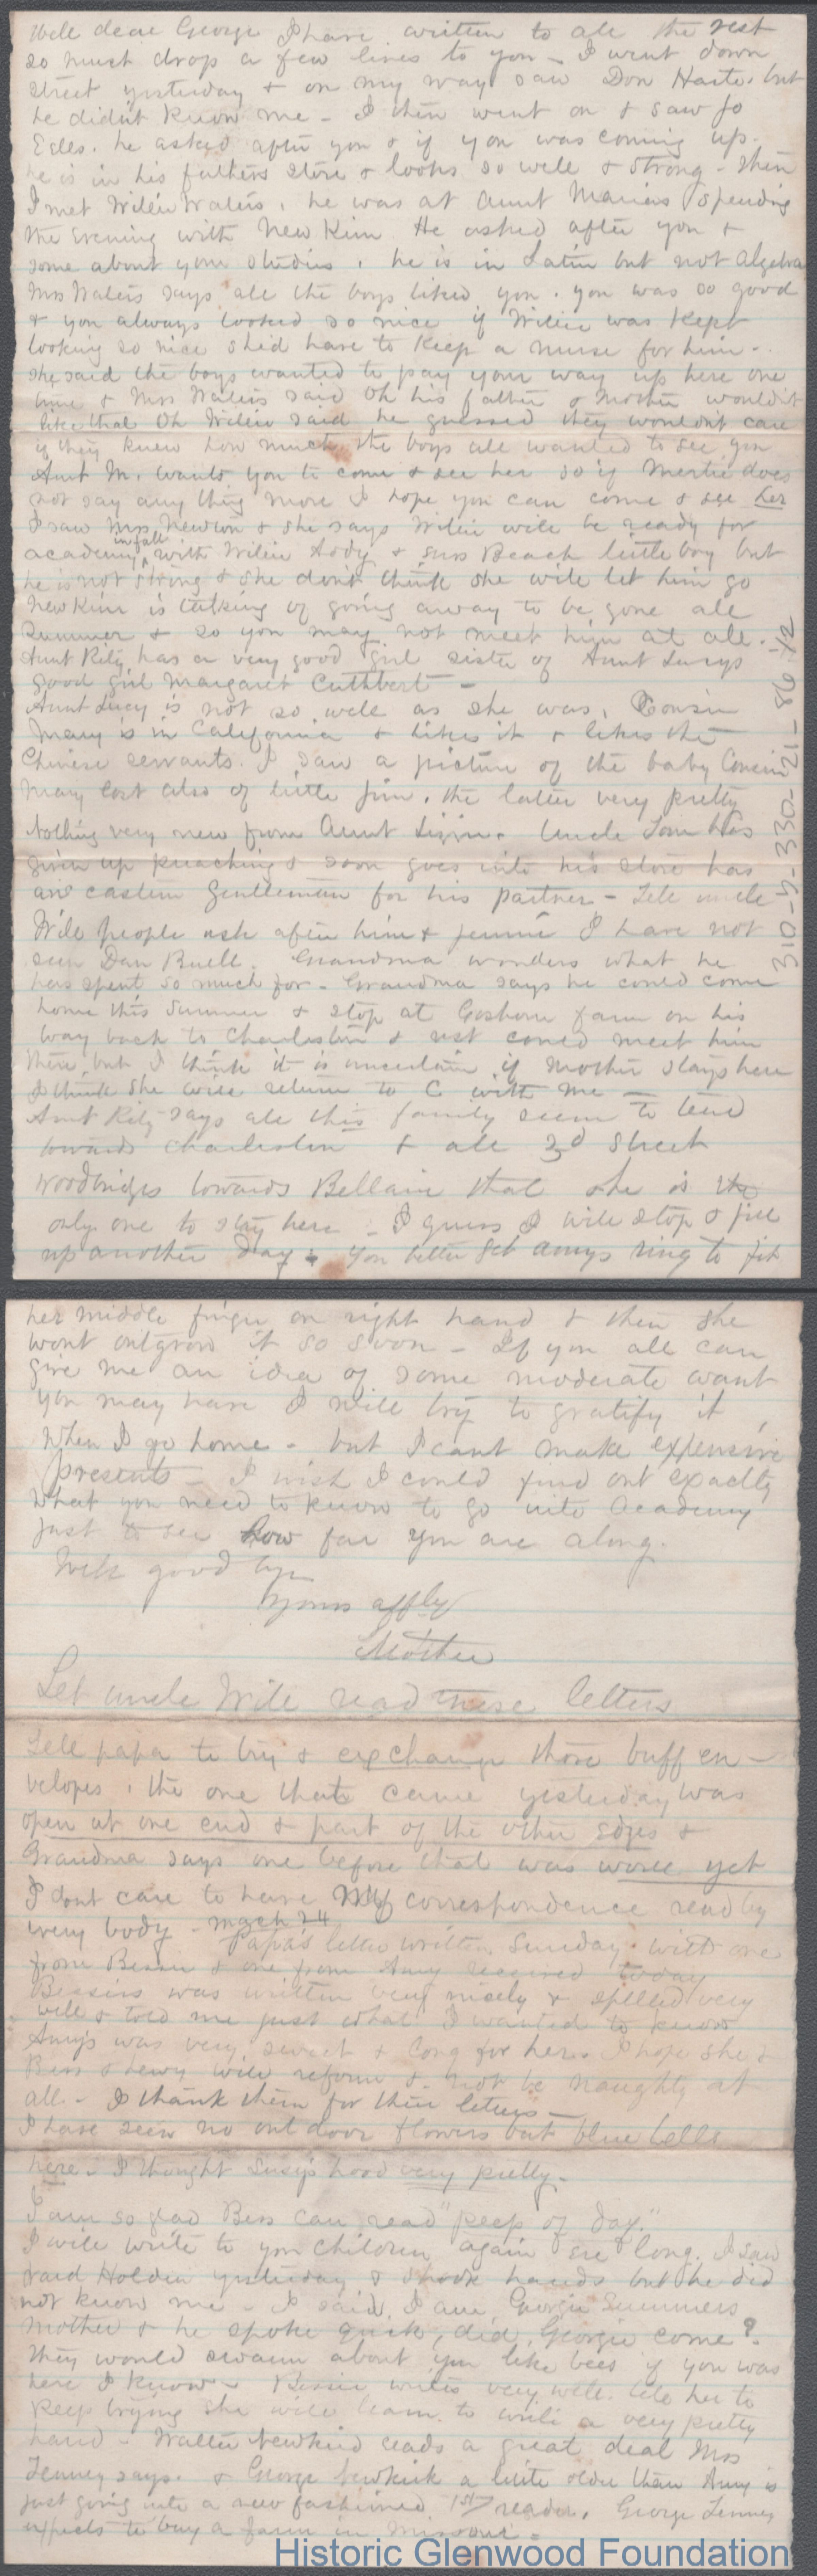 Well dear George I have written to all the rest
so must drop a few lines to you - I went down
street yesterday & on my way saw Don Harte but
he didn't know me - I then went on & saw Jo
Eeles. he asked after you & if you was coming up.
he is in his fathers store & looks so well & strong - then
I met Willie Waters, he was at Aunt Marias spending
the evening with New Kim He asked after you &
some about your studies, he is in Latin but not Algebra
Mrs Waters says all the boys liked you. you was so good
& you always looked so nice if Willie was kept
looking so nice she'd have to keep a nurse for him -
she said the boys wanted to pay your way up here one
time & Mrs Waters said Oh his father & mother wouldn't
like that Oh Willie said he guessed they wouldn't care
if they knew how much the boys all wanted to see you
Aunt M. wants you to come & see her so if Mertie does
not say any thing more I hope you can come & see her
I saw Mrs Newton & she says Willie will be ready for
academy in fall with Willie & Beach little boy but
he is not strong & she don't think she will let him go
New Kim is talking of going away to be gone all
summer & so you may not meet him at all.
Aunt Kity has a very good girl sister of Aunt Lucys
good girl Margaret Cuthbert -
Aunt Lucy is not so well as she was, Cousin
Mary is in California & likes it & likes the
Chinese servants. I saw a picture of the baby Cousin
Mary lost also of little Jim, the latter very pretty
Nothing very new from Aunt Lizzie. Uncle Tom has
given up preaching & soon goes into his store has
an eastern gentleman for his partner - Tell uncle
Will people ask after him & Jennie I have not
seen Dan Buell. Grandma wonders what he
has spent so much for - Grandma says he could come
home this summer & stop at Goshorn farm on his
way back to Charleston & rest could meet him
there, but I think it is uncertain if Mother stays here
I think she will return to C with me -
Aunt Kity says all this family seem to tend
towards Charleston & all 3d Street
Woodbridges towards Bellair that she is the
only one to stay here - I guess I will stop & fill
up another day. You better get Amys ring to fit
310-y-330-21-86-42
her middle finger on right hand & then she
wont outgrow it so soon - If you all can
give me an idea of some moderate want
you may have I will try to gratify it
When I go home - but I cant make expensive
presents - I wish I could find out exactly
What you need to know to go into Academy
just to see how far you are along.
Well good bye
Yours affly
Mother
Let uncle Will read these letters
Tell papa to try & exchange those buff en-
velopes, the one that came yesterday was
open at one end & part of the other edges &
Grandma says one before that was worse yet
I dont care to have My correspondence read by
every body - March 24
Papa's letter written Sunday with one
from Bessie & one from Amy received today
Bessies was written very nicely & spelled very
well & told me just what I wanted to know
Amy's was very sweet & long for her. I hope she &
Bess & Lewy will reform & not be naughty at
all - I thank them for their letters -
I have seen no out door flowers but blue bells
here - I thought Susy's hood very pretty -
I am so glad Bess can read "peep of day."
I will write to you children again ere long. I saw
Ward Holden yesterday & shook hands but he did
not know me - I said, I am Georgie Summers
Mother & he spoke quick, did Georgie come?
They would swarm about you like bees if you was
here I know - Bessie writes very well. tell her to
keep trying she will learn to write a very pretty
hand - Walter Newkird reads a great deal Mrs
Tenney says. & George Newkirk a little older than Amy is
just going into a new fashioned 1st reader. George Tenney
expects to buy a farm in Missouri -
Historic Glenwood Foundation